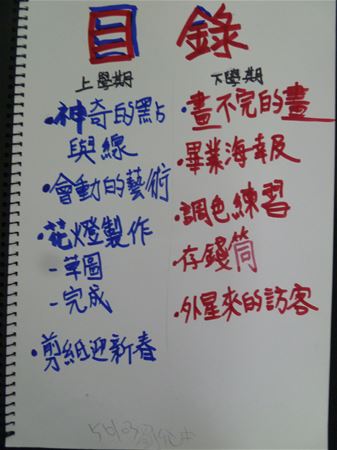 目錄
上學期
•神奇的點
與線
•會動的藝術
•花燈製作
-草圖
-完成
•剪紙迎新春
下學期
•畫不完的畫
•畢業海報
•調色練習
•存錢筒
•外星來的訪客